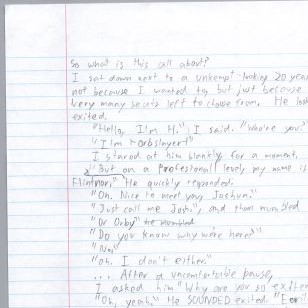 So what is this all about?
I sat down next to a unkempt-looking 20 year
not because I wanted to, but just because
very many seats left to choose from. He look
excited.
"Hello, I'm H." I said. "Who're you?"
"I'm
I stared at him blankly for a moment.
"But on a professional level my name is
He quickly responded.
"Oh. Nice to meet you, Joshua."
"Just call me Josh", and then mumbled
"Or Orby" he mumbled
"Do you know why we're here?"
"No."
"Oh. I don't either."
... After a uncomfortable pause,
I asked him "Why are you so excited
"Oh, yeah." He SOUNDED excited.